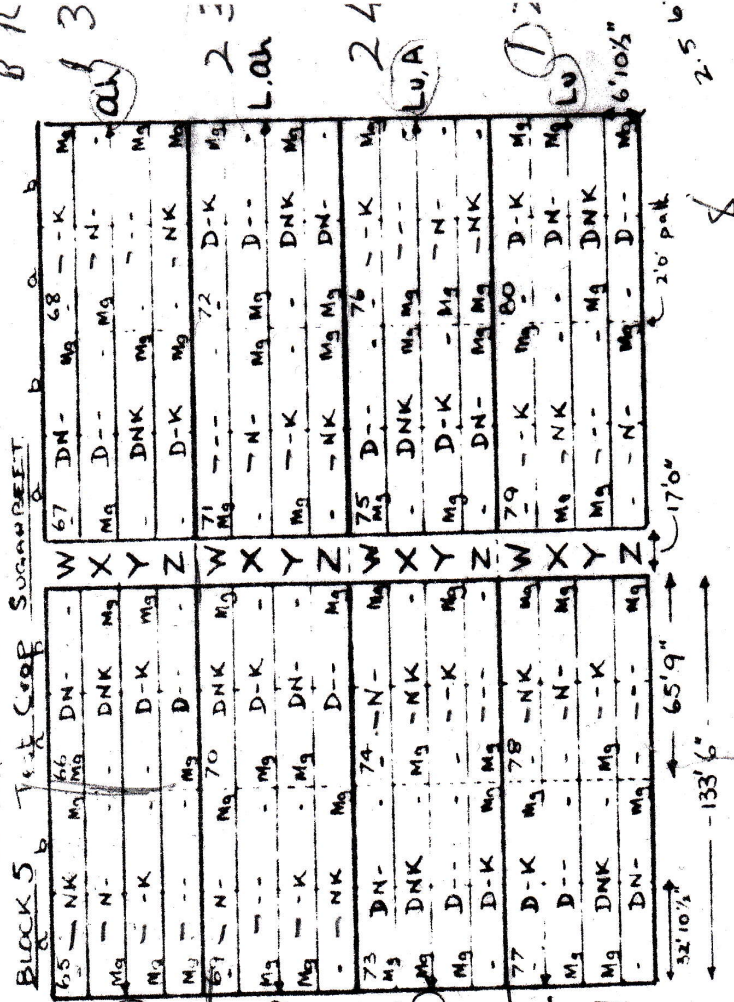 BLOCK 5 Test Crop SUGARBEET
a b a b a b a b
65 - - NK Mg 66 Mg DN- - W 67 - DN- Mg 68 - --K Mg
- - N- - - DNK Mg X Mg D-- - Mg -N- - ah 3
Mg --K - - D-K Mg Y - DNK Mg - --- Mg
Mg --- - Mg D-- - Z - D-K Mg - -NK Mg
69 - -N- Mg 70 - DNK Mg W 71 Mg --- - 72 - D-K Mg
Mg --- - Mg D-K - X - -N- Mg - D-- - L.ah 2
Mg --K - Mg DN- - Y Mg --K - - DNK Mg
- -NK Mg - D-- Mg Z - -NK Mg Mg DN- -
73 Mg DN- - 74 - -N- Mg W 75 Mg D-- - 76 - --K Mg
Mg DNK - Mg -NK - X - DNK Mg Mg --- - Lu,A 24
Mg D-- - - --K Mg Y Mg D-K - Mg -N- -
- D-K Mg Mg --- - Z - DN- Mg Mg -NK -
77 - D-K Mg 78 - -NK Mg W 79 - --K Mg 80 - D-K Mg
Mg D-- - - -N- Mg X Mg -NK - - DN- Mg Lu 1
Mg DNK - Mg --K - Y Mg --- - Mg DNK -
- DN- Mg - --- Mg Z - -N- Mg - D-- Mg 6'10½"
32'10½" 65'9" 17'0" 2'0" path
133'6" 2.5